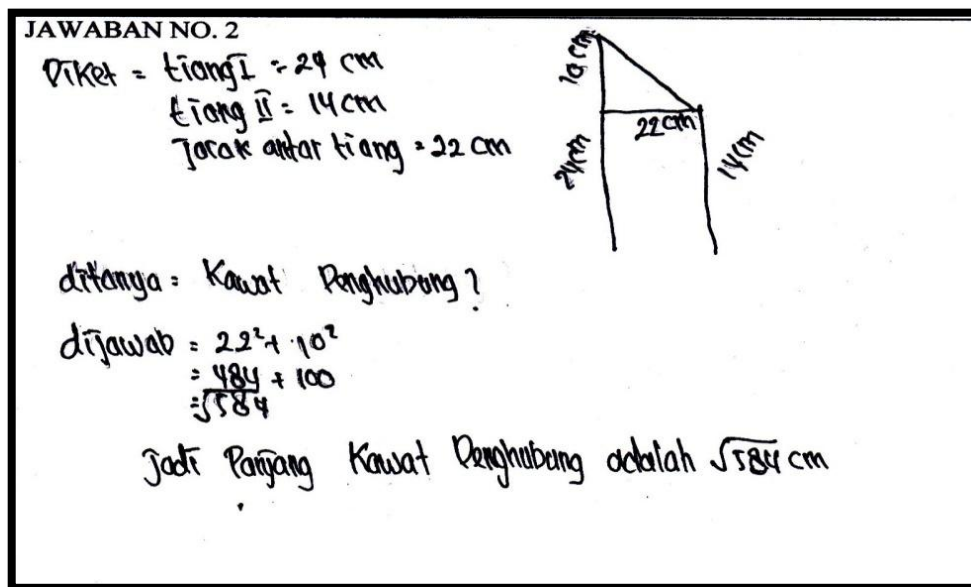 JAWABAN NO. 2
Diket = tiang I = 24 cm
tiang II = 14 cm
Jarak antar tiang = 22 cm
10 cm
22 cm
24 cm
14 cm
ditanya = Kawat Penghubung?
dijawab = 22² + 10²
= 484 + 100
= √584
Jadi Panjang Kawat Penghubung adalah √584 cm